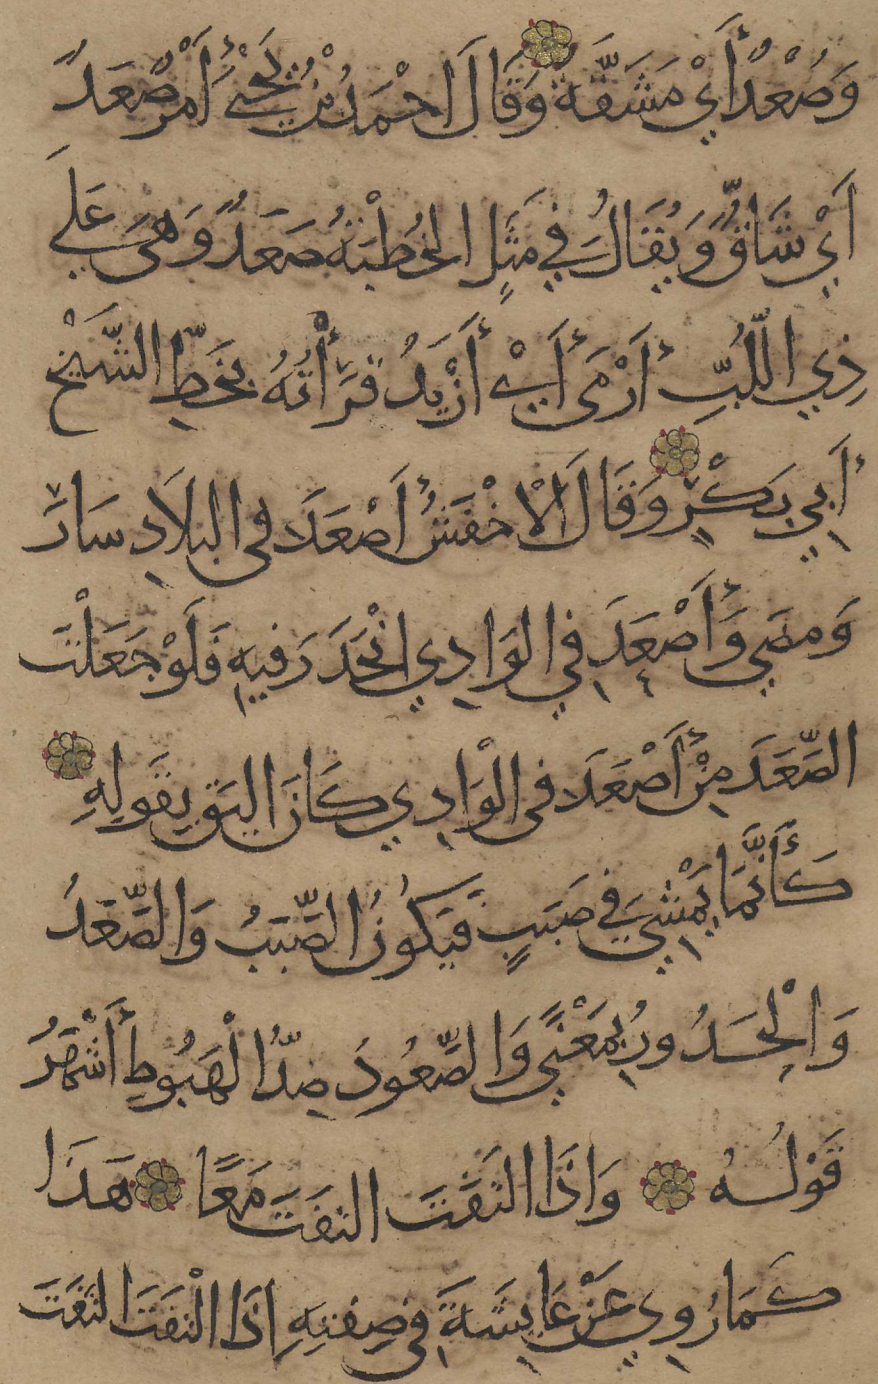 وَصُعْدٌ أَيْ مَشَقَّة وَقَالَ احْمَدُ بْنُ يَحْيَى أَمْرٌ صَعَدٌ
أَيْ شَاقٌّ وَيُقَالُ فِي مَثَلٍ الخُطْبَةُ صَعَدٌ وَهِيَ عَلَى
ذِي اللُّبِّ أَرْمَى أَيْ أَزْيَدُ قَرَأْتُهُ بِخَطِّ الشَّيْخِ
أَبِي بَكْرٍ وَقَالَ الْاخْفَشُ أَصْعَدَ فِي البِلَادِ سَارَ
وَمضَى وَأَصْعَدَ فِي الوَادِي انْحَدَرَ فِيهِ فَلَوْ جَعَلْتَ
الصَّعَدَ مِنْ أَصْعَدَ فى الْوَادِي كَانَ اليَقَ بِقَولِهِ
كَأَنَّمَا يَمْشِي فِي صَبَبٍ فَيَكُونُ الصَّبَبُ وَالصَّعَدُ
وَالْحَدُورُ بِمَعْنًى وَالصَّعُودُ ضِدُّ الْهَبُوطِ أَشْهَرُ
قَوْلُهُ وَاذَا التَفَتَ التفَتَ مَعًا هَذَا
كَمَا رُوِي عَنْ عَايِشَةَ فِي صِفتِهِ اذَا الْتفَتَ التَفَتَ